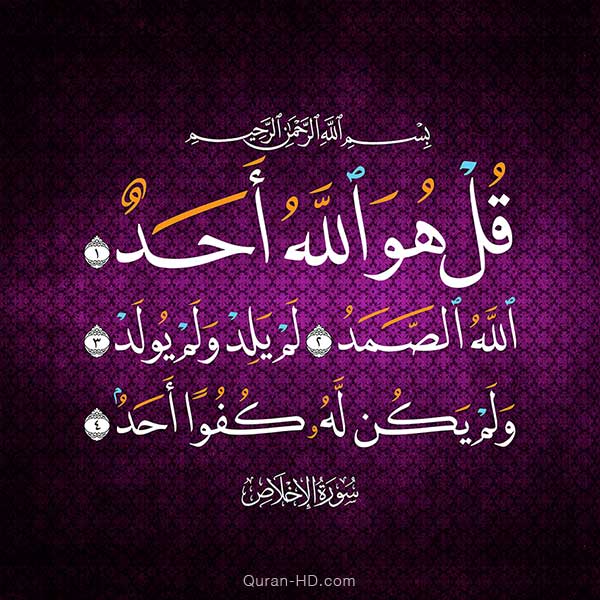 بِسْمِ ٱللَّهِ ٱلرَّحْمَٰنِ ٱلرَّحِيمِ
قُلْ هُوَ ٱللَّهُ أَحَدٌ ١
ٱللَّهُ ٱلصَّمَدُ ٢ لَمْ يَلِدْ وَلَمْ يُولَدْ ٣
وَلَمْ يَكُن لَّهُۥ كُفُوًا أَحَدٌۢ ٤
سُورَةُ الإِخْلَاصِ
Quran-HD.com